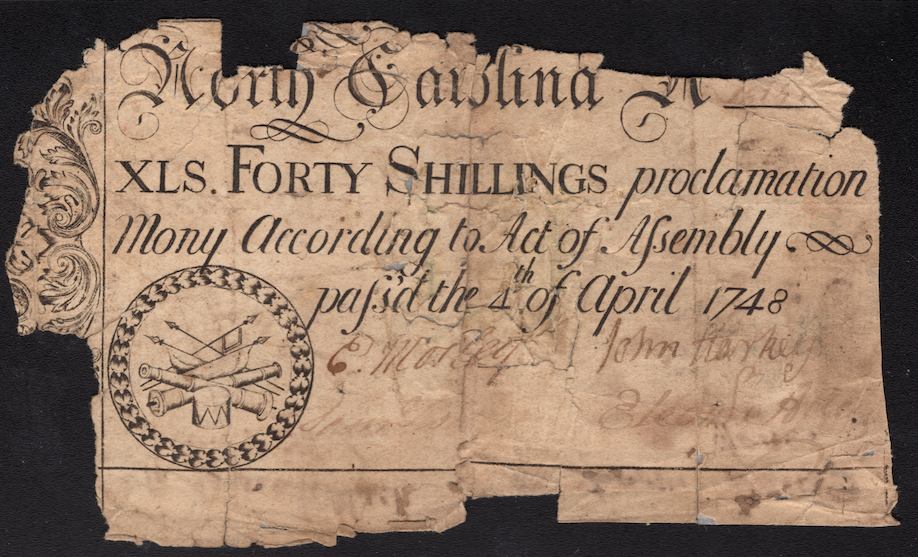 North Carolina N
XLS. FORTY SHILLINGS proclamation
Mony According to Act of Aſsembly
paſs'd the 4th of April 1748
John Starkey